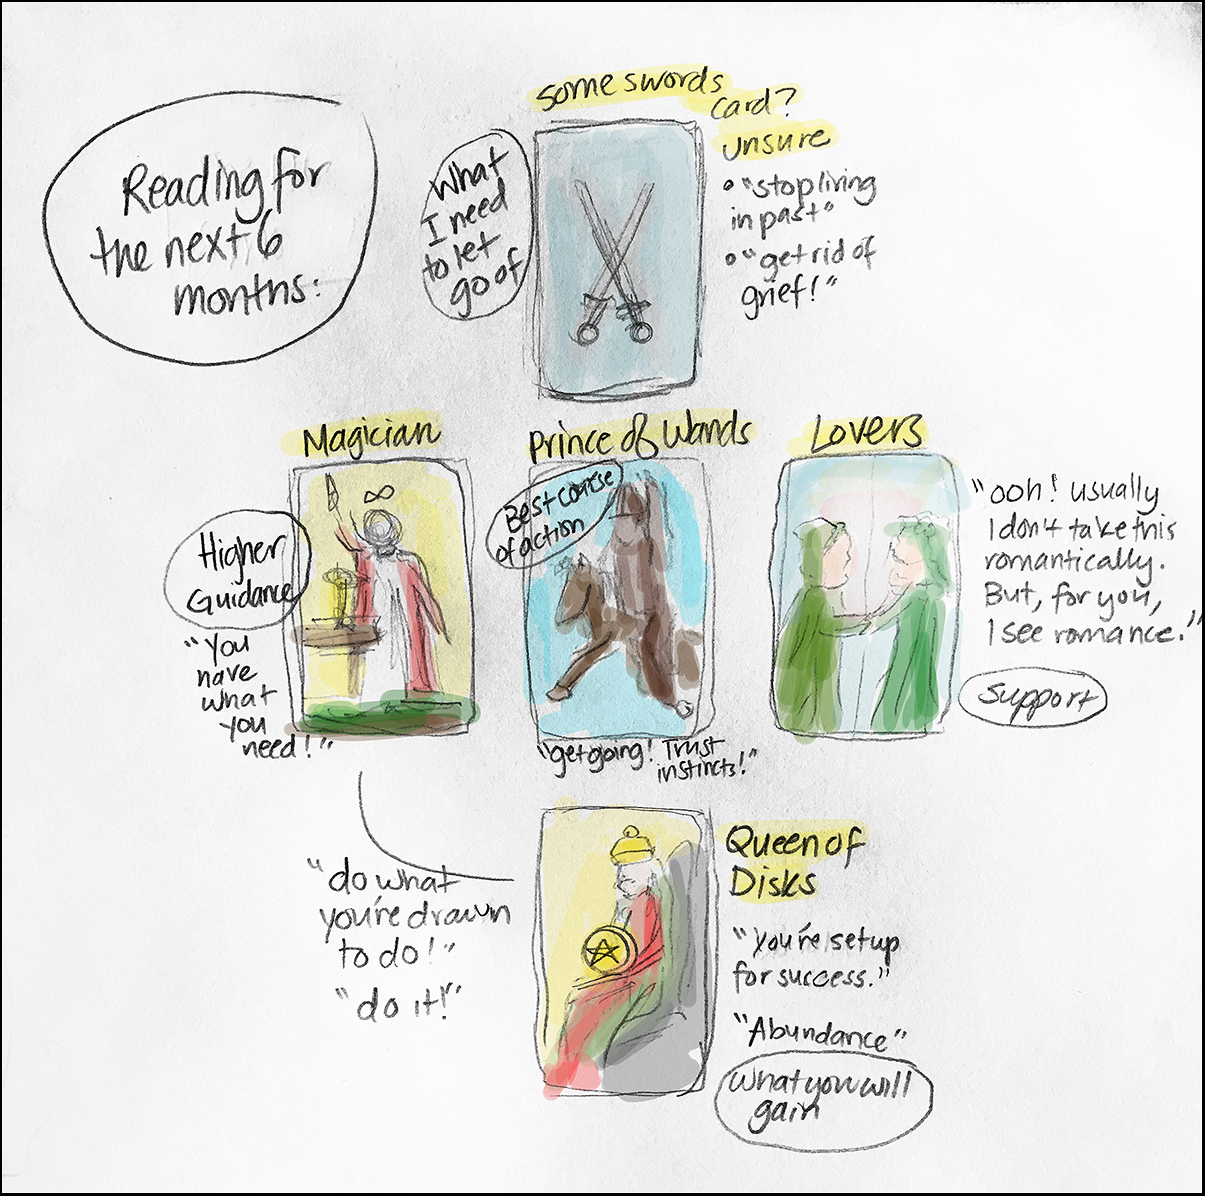 Reading for
the next 6
months:
some swords
card?
unsure
What
I need
to let
go of
• "stop living
in past"
• "get rid of
grief!"
Magician
Higher
Guidance
∞
"You
have
what
you
need!"
Prince of Wands
Best course
of action
"get going! Trust
instincts!"
Lovers
"ooh! usually
I don't take this
romantically.
But, for you,
I see romance."
support
"do what
you're drawn
to do!"
"do it!"
Queen of
Disks
"You're setup
for success."
"Abundance"
What you will
gain